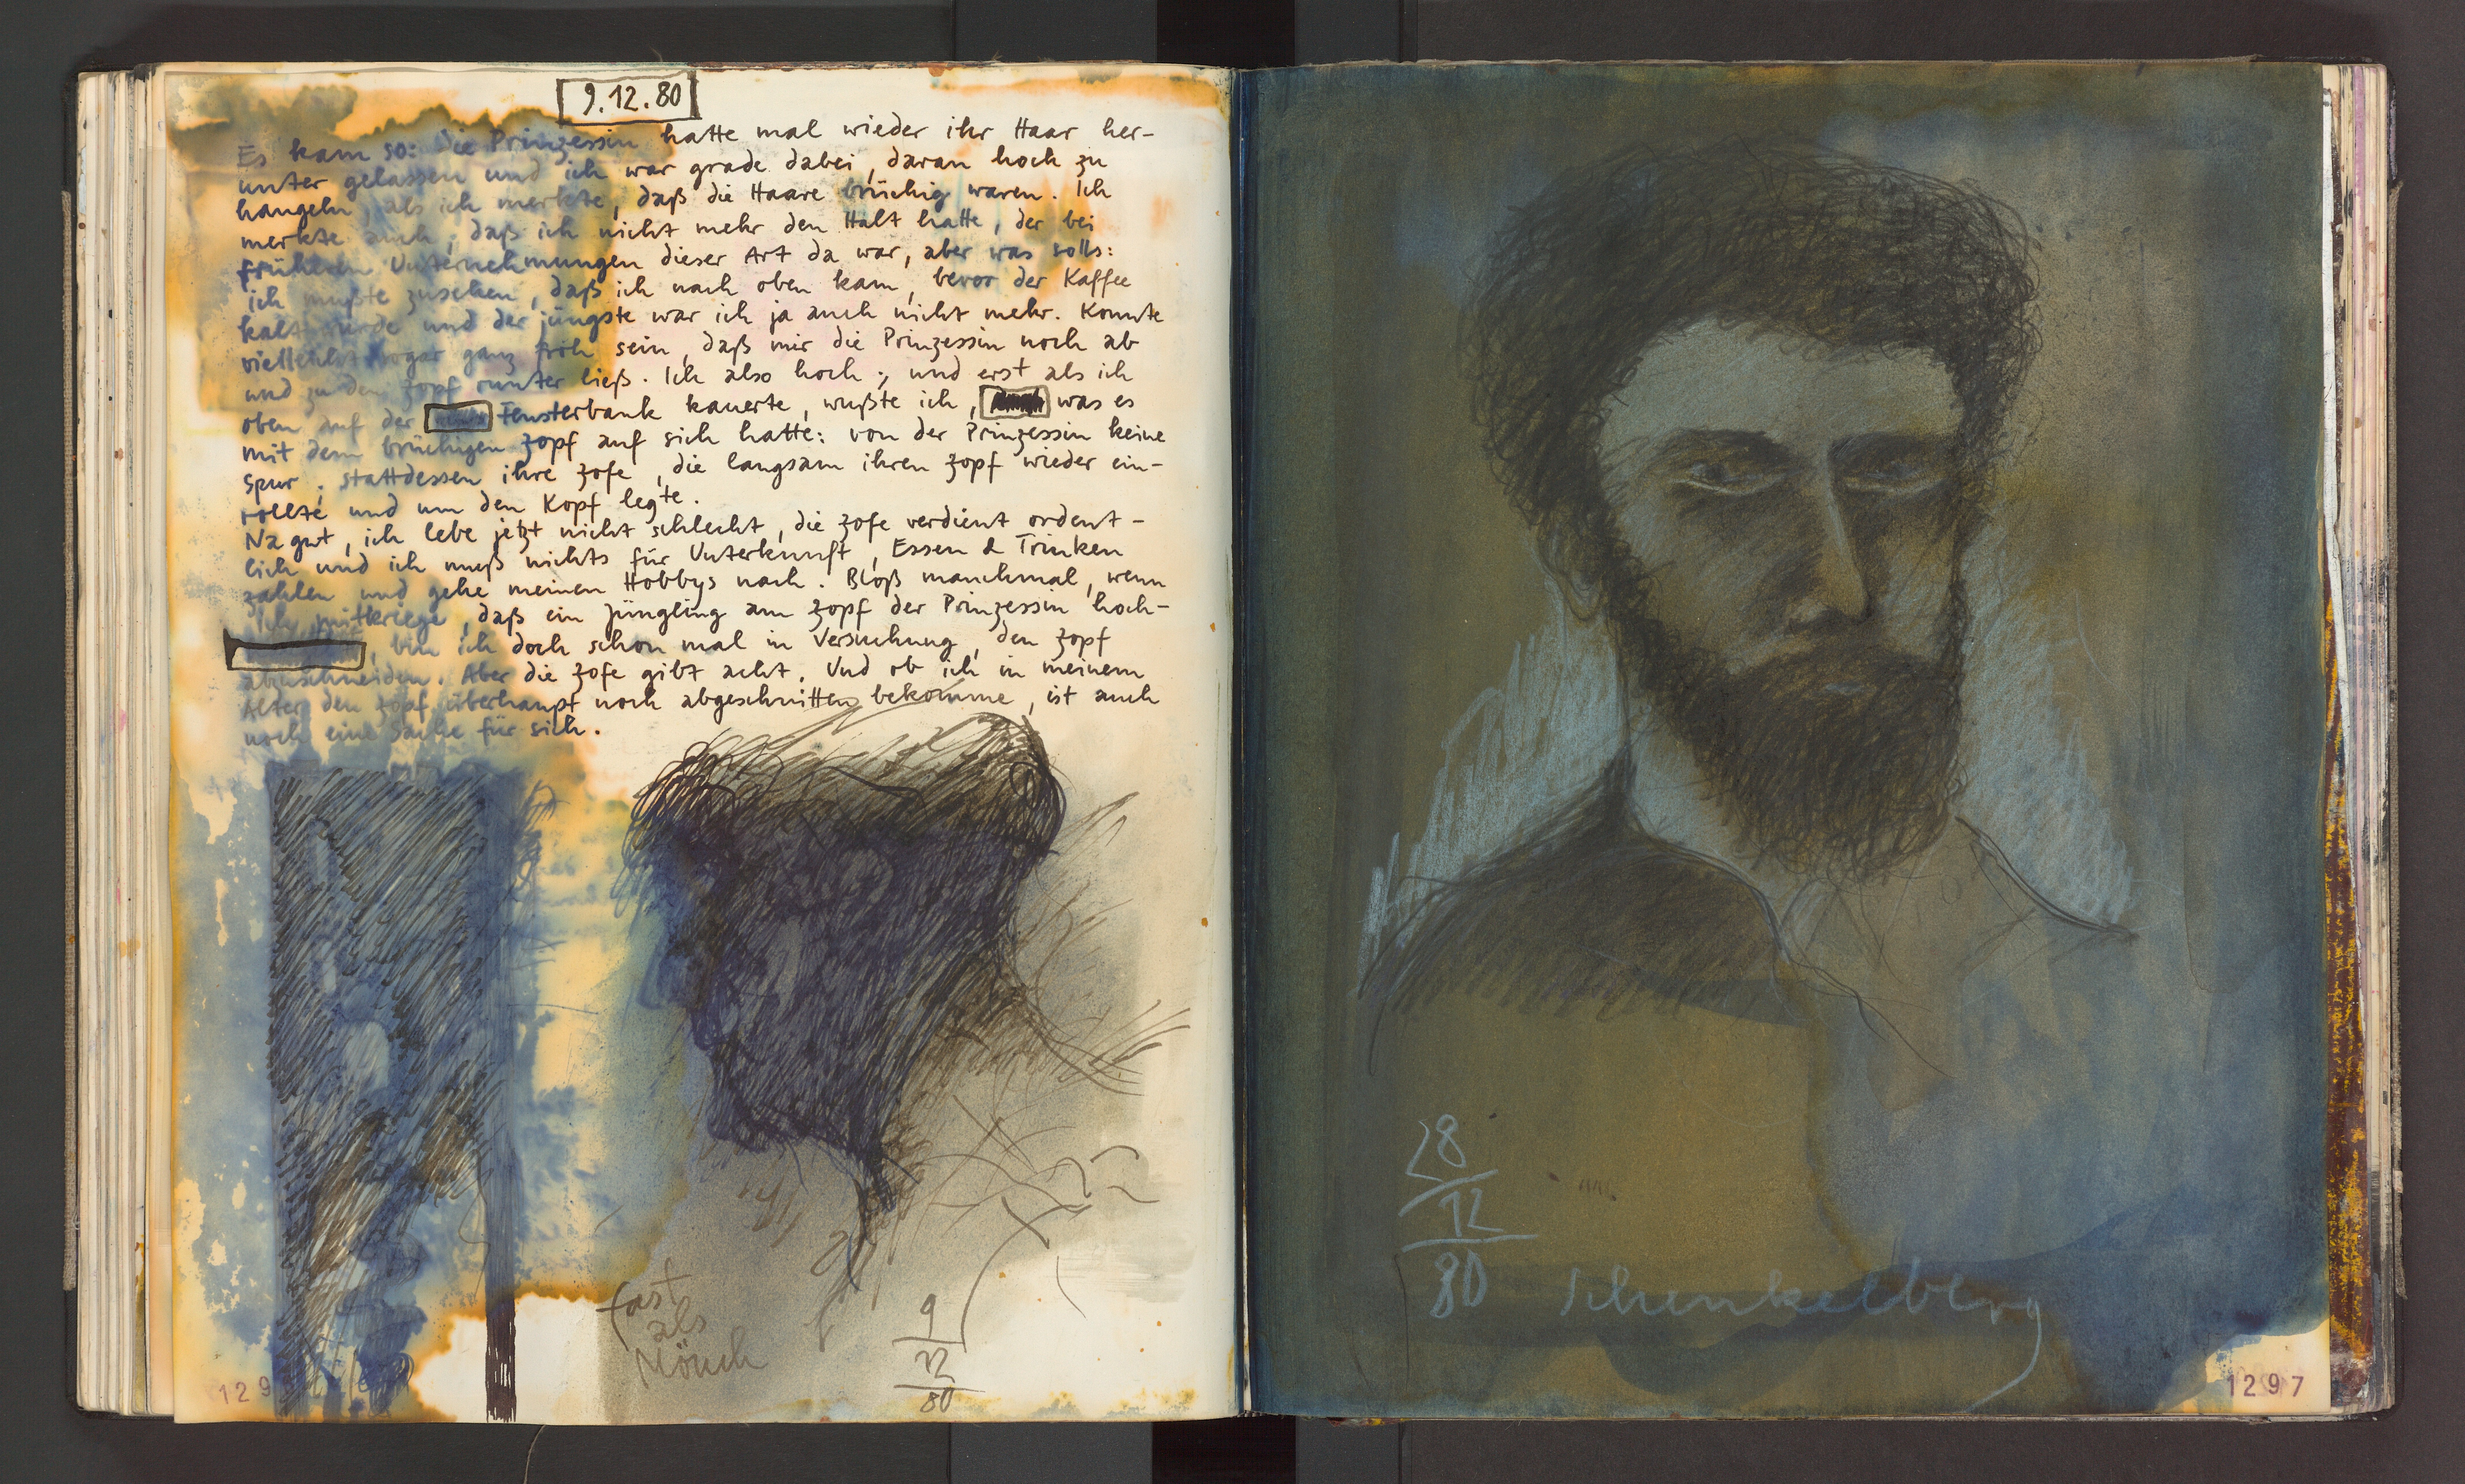 9.12.80
Es kam so: Die Prinzessin hatte mal wieder ihr Haar her-
unter gelassen und ich war grade dabei, daran hoch zu
hangeln, als ich merkte, daß die Haare brüchig waren. Ich
merkte auch, daß ich nicht mehr den Halt hatte, der bei
früheren Unternehmungen dieser Art da war, aber was solls:
ich mußte zusehen, daß ich nach oben kam, bevor der Kaffee
kalt würde und der jüngste war ich ja auch nicht mehr. Konnte
vielleicht sogar ganz froh sein, daß mir die Prinzessin noch ab
und zu den Zopf runter ließ. Ich also hoch, und erst als ich
oben auf der Fensterbank kauerte, wußte ich, was es
mit dem brüchigen Zopf auf sich hatte: von der Prinzessin keine
Spur, stattdessen ihre Zofe, die langsam ihren Zopf wieder ein-
rollte und um den Kopf legte.
Na gut, ich lebe jetzt nicht schlecht, die Zofe verdient ordent-
lich und ich muß nichts für Unterkunft, Essen & Trinken
zahlen und gehe meinen Hobbys nach. Bloß manchmal, wenn
ich mitkriege, daß ein Jüngling am Zopf der Prinzessin hoch-
, bin ich doch schon mal in Versuchung, den Zopf
abzuschneiden. Aber die Zofe gibt acht. Und ob ich in meinem
Alter den Zopf überhaupt noch abgeschnitten bekomme, ist auch
noch eine Sache für sich.
fast
als
Mönch
9
12
80
129
28
12
80
Schenkelberg
1297